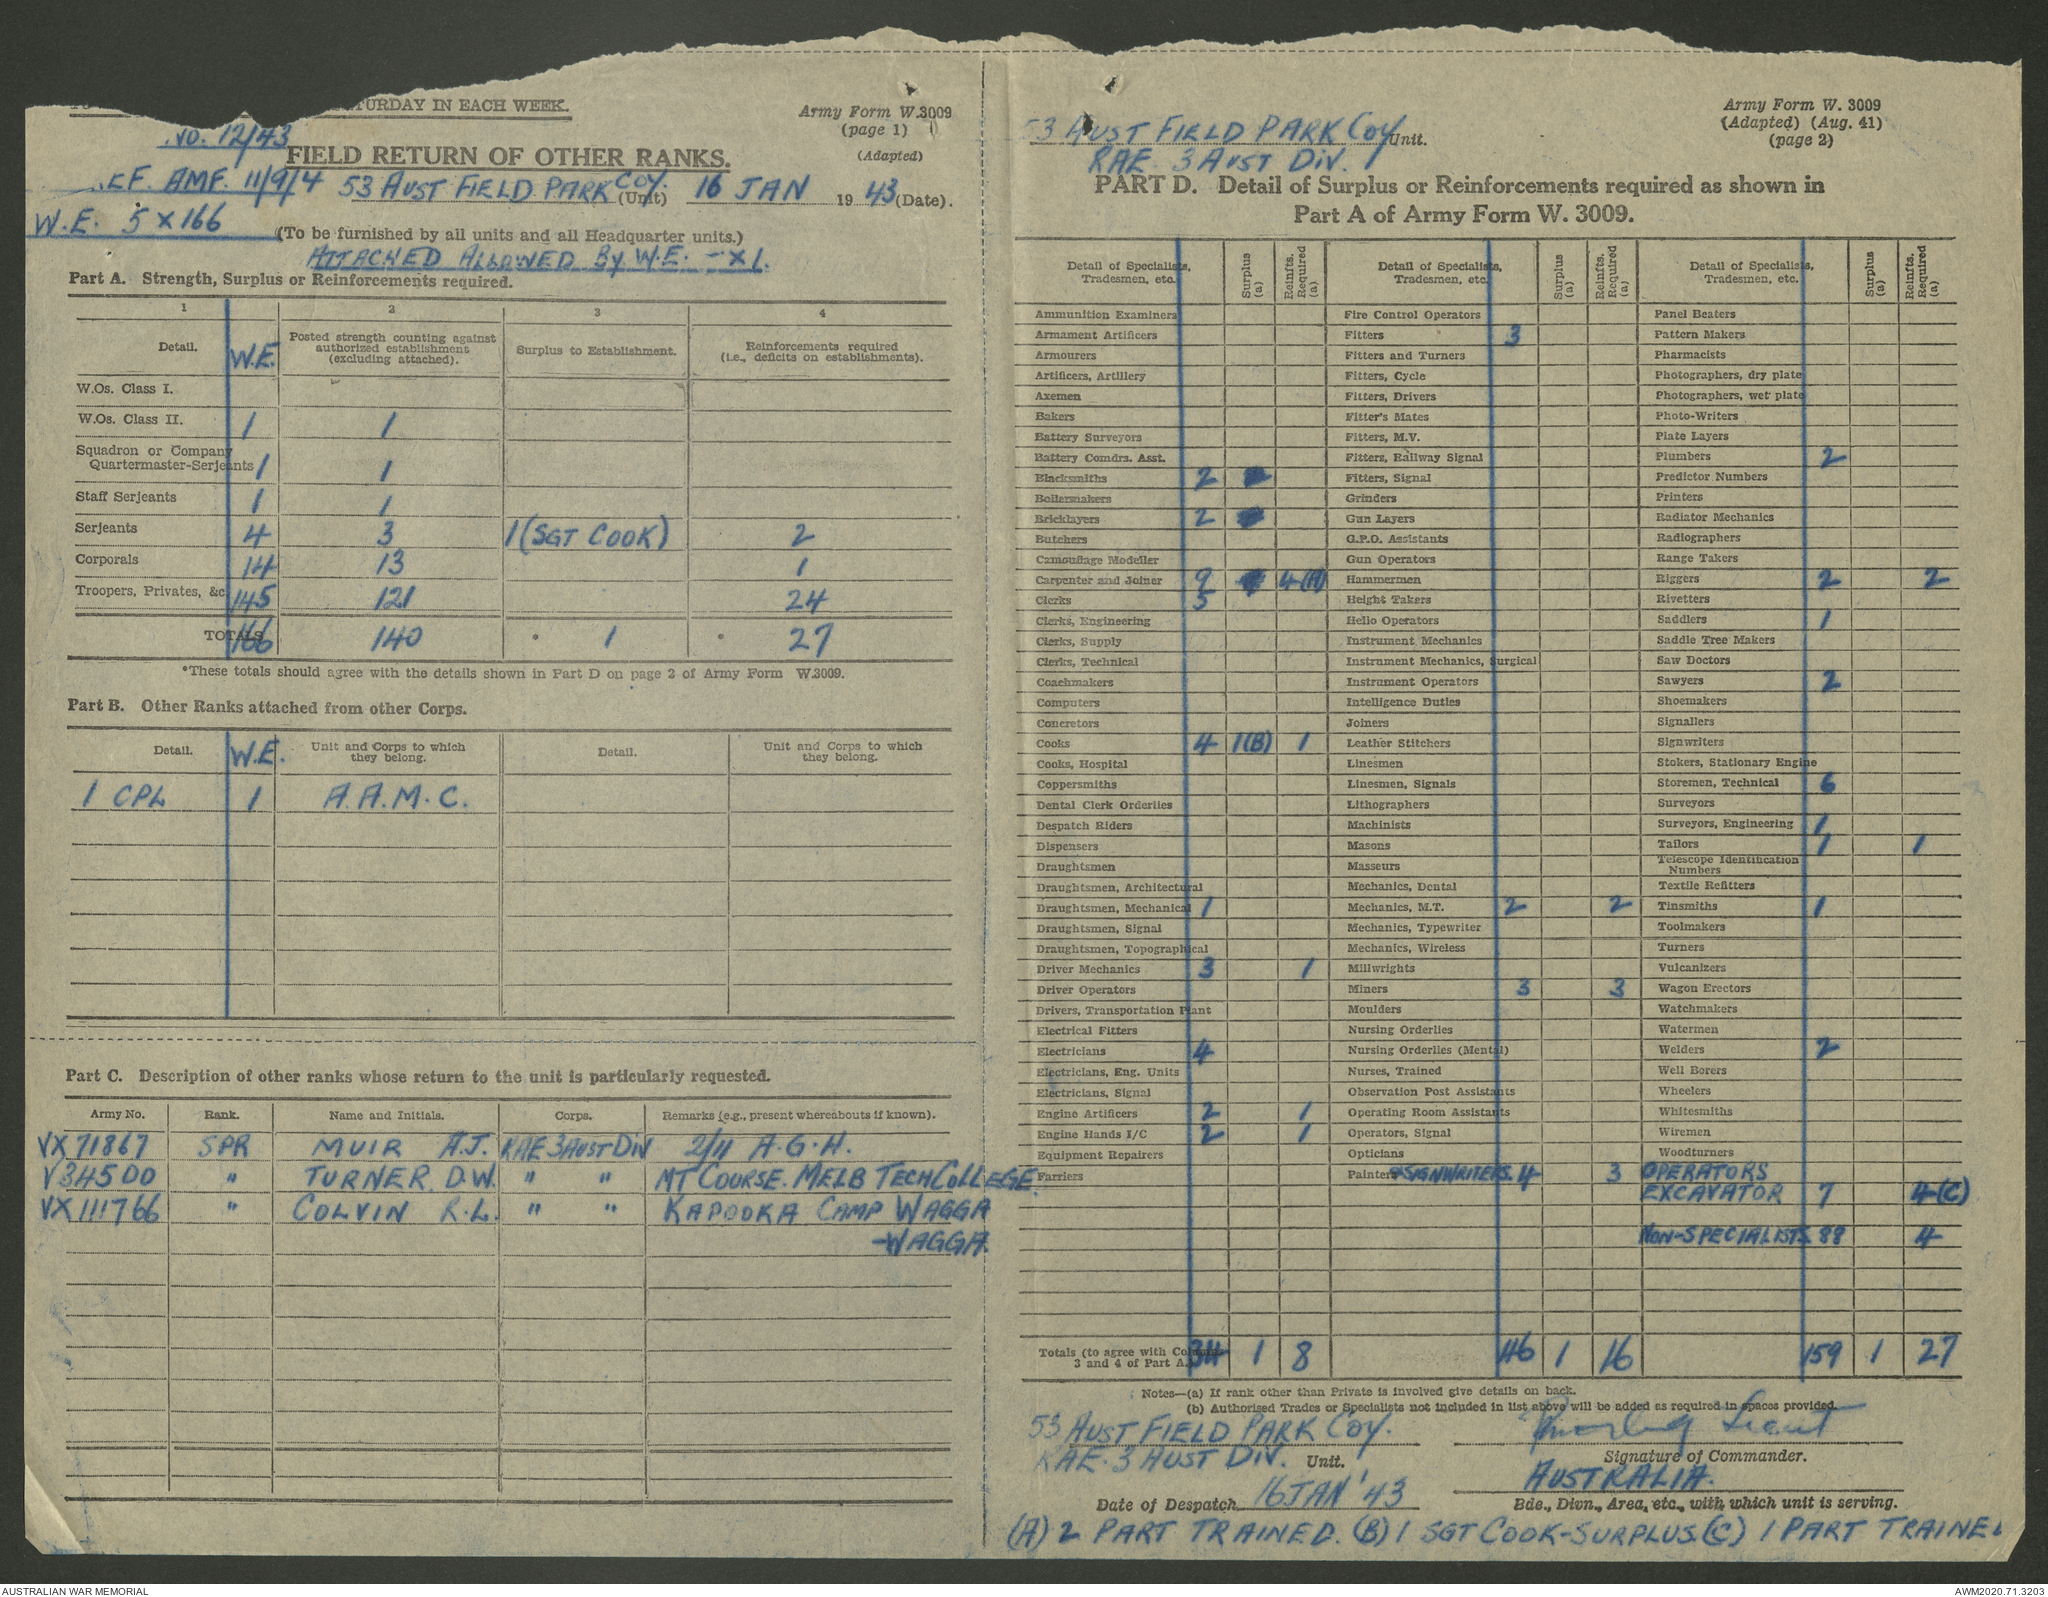 TURDAY IN EACH WEEK.
Army Form W.3009
(page 1)
(Adapted)
No. 12/43
FIELD RETURN OF OTHER RANKS.
EF. AMF. 11/9/4 53 AUST FIELD PARK COY. (Unit) 16 JAN 1943 (Date).
W.E. 5 X 166
(To be furnished by all units and all Headquarter units.)
ATTACHED ALLOWED BY W.E. - X 1.
Part A. Strength, Surplus or Reinforcements required.
1 2 3 4
Detail. W.E. Posted strength counting against authorized establishment (excluding attached). Surplus to Establishment. Reinforcements required (i.e., deficits on establishments).
W.Os. Class I.
W.Os. Class II. 1 1
Squadron or Company
Quartermaster-Serjeants 1 1
Staff Serjeants 1 1
Serjeants 4 3 1 (SGT COOK) 2
Corporals 14 13 1
Troopers, Privates, &c 145 121 24
TOTALS 166 140 * 1 * 27
*These totals should agree with the details shown in Part D on page 2 of Army Form W.3009.
Part B. Other Ranks attached from other Corps.
Detail. W.E. Unit and Corps to which they belong. Detail. Unit and Corps to which they belong.
1 CPL 1 A.A.M.C.
Part C. Description of other ranks whose return to the unit is particularly requested.
Army No. Rank. Name and Initials. Corps. Remarks (e.g., present whereabouts if known).
VX71867 SPR MUIR A.J. RAE 3 AUST DIV 2/11 A.G.H.
V34500 " TURNER D.W. " " MT COURSE. MELB TECH COLLEGE.
VX111766 " COLVIN R.L. " " KAPOOKA CAMP WAGGA
-WAGGA.
53 AUST FIELD PARK COY Unit.
RAE. 3 AUST DIV.
Army Form W. 3009
(Adapted) (Aug. 41)
(page 2)
PART D. Detail of Surplus or Reinforcements required as shown in
Part A of Army Form W. 3009.
Detail of Specialists, Tradesmen, etc. Surplus (a) Reinfts. Required (a) Detail of Specialists, Tradesmen, etc. Surplus (a) Reinfts. Required (a) Detail of Specialists, Tradesmen, etc. Surplus (a) Reinfts. Required (a)
Ammunition Examiners Fire Control Operators Panel Beaters
Armament Artificers Fitters 3 Pattern Makers
Armourers Fitters and Turners Pharmacists
Artificers, Artillery Fitters, Cycle Photographers, dry plate
Axemen Fitters, Drivers Photographers, wet plate
Bakers Fitter's Mates Photo-Writers
Battery Surveyors Fitters, M.V. Plate Layers
Battery Comdrs. Asst. Fitters, Railway Signal Plumbers 2
Blacksmiths 2 Fitters, Signal Predictor Numbers
Boilermakers Grinders Printers
Bricklayers 2 Gun Layers Radiator Mechanics
Butchers G.P.O. Assistants Radiographers
Camouflage Modeller Gun Operators Range Takers
Carpenter and Joiner 9 4(A) Hammermen Riggers 2 2
Clerks 5 Height Takers Rivetters
Clerks, Engineering Helio Operators Saddlers 1
Clerks, Supply Instrument Mechanics Saddle Tree Makers
Clerks, Technical Instrument Mechanics, Surgical Saw Doctors
Coachmakers Instrument Operators Sawyers 2
Computers Intelligence Duties Shoemakers
Concretors Joiners Signallers
Cooks 4 1(B) 1 Leather Stitchers Signwriters
Cooks, Hospital Linesmen Stokers, Stationary Engine
Coppersmiths Linesmen, Signals Storemen, Technical 6
Dental Clerk Orderlies Lithographers Surveyors
Despatch Riders Machinists Surveyors, Engineering 1
Dispensers Masons Tailors 1 1
Draughtsmen Masseurs Telescope Identification Numbers
Draughtsmen, Architectural Mechanics, Dental Textile Refitters
Draughtsmen, Mechanical 1 Mechanics, M.T. 2 2 Tinsmiths 1
Draughtsmen, Signal Mechanics, Typewriter Toolmakers
Draughtsmen, Topographical Mechanics, Wireless Turners
Driver Mechanics 3 1 Millwrights Vulcanizers
Driver Operators Miners 3 3 Wagon Erectors
Drivers, Transportation Plant Moulders Watchmakers
Electrical Fitters Nursing Orderlies Watermen
Electricians 4 Nursing Orderlies (Mental) Welders 2
Electricians, Eng. Units Nurses, Trained Well Borers
Electricians, Signal Observation Post Assistants Wheelers
Engine Artificers 2 1 Operating Room Assistants Whitesmiths
Engine Hands I/C 2 1 Operators, Signal Wiremen
Equipment Repairers Opticians Woodturners
Farriers Painters & SIGNWRITERS. 4 3 OPERATORS
EXCAVATOR 7 4(C)
NON-SPECIALISTS. 88 4
Totals (to agree with Columns 3 and 4 of Part A.) 34 1 8 46 1 16 159 1 27
Notes—(a) If rank other than Private is involved give details on back.
(b) Authorised Trades or Specialists not included in list above will be added as required in spaces provided.
53 AUST FIELD PARK COY.
RAE. 3 AUST DIV. Unit.
Lieut
Signature of Commander.
AUSTRALIA.
Date of Despatch 16 JAN '43
Bde., Divn., Area, etc., with which unit is serving.
(A) 2 PART TRAINED. (B) 1 SGT COOK-SURPLUS (C) 1 PART TRAINE
AUSTRALIAN WAR MEMORIAL
AWM2020.71.3203